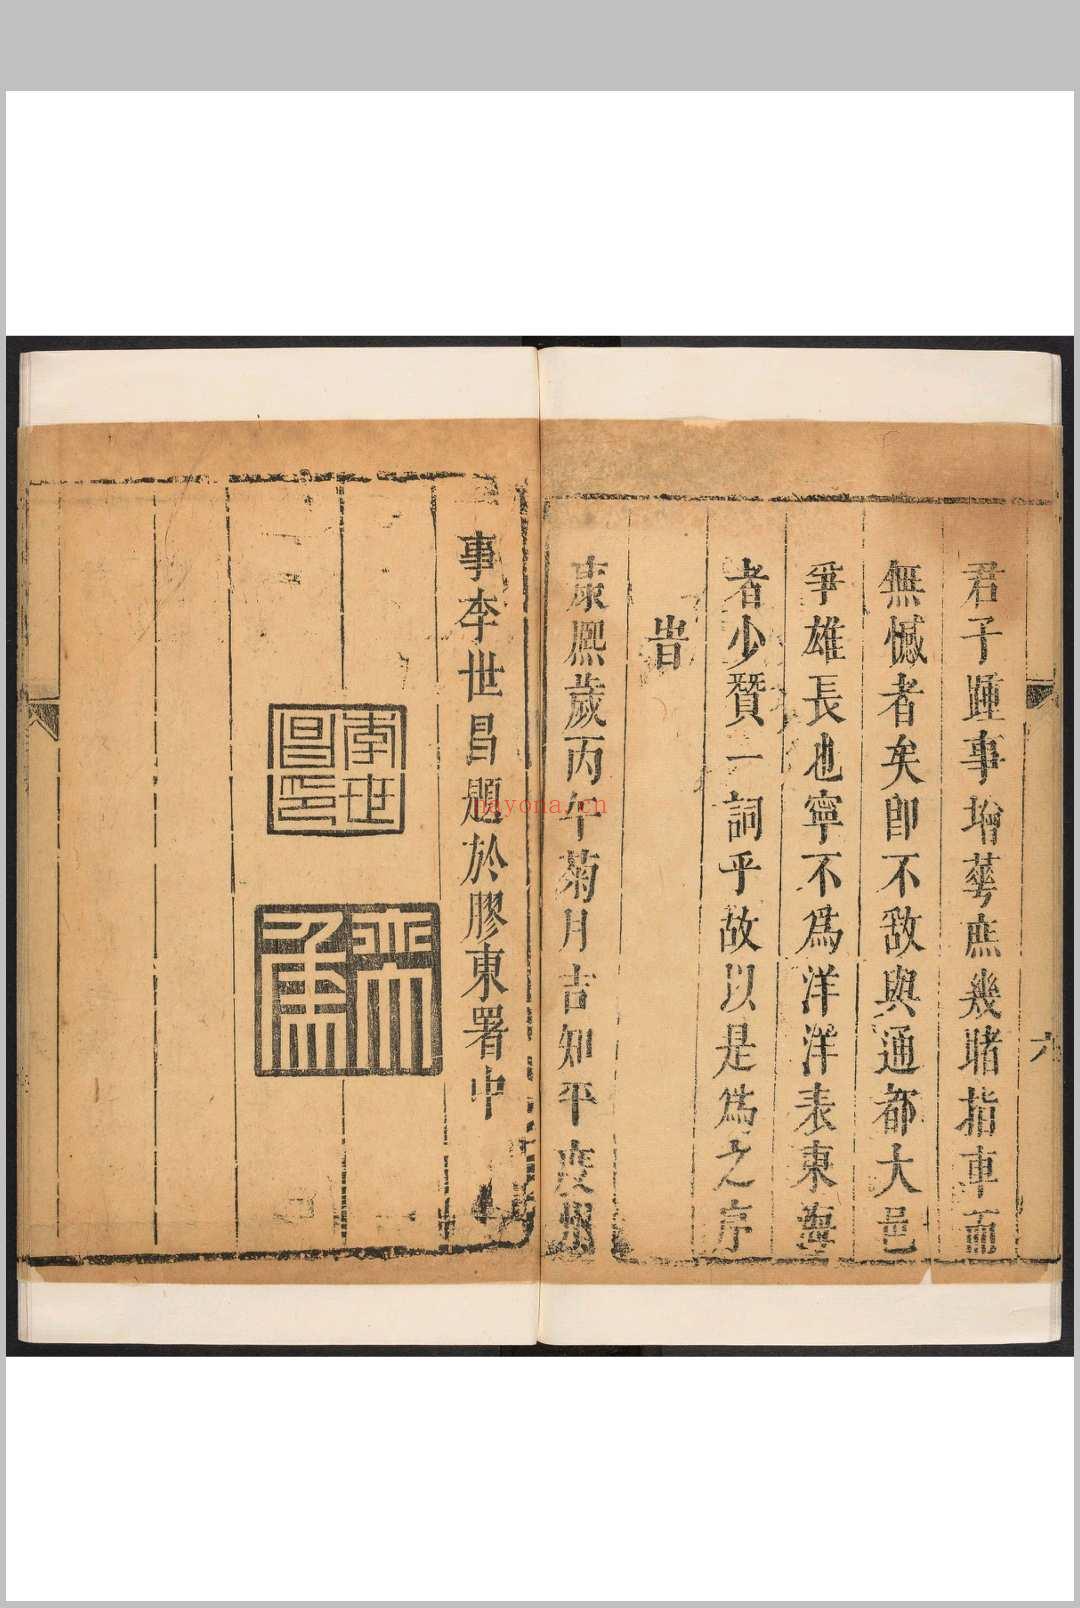 六
君子踵事增華庶幾睹指車而
無憾者矣卽不敌與通都大邑
爭雄長也寧不爲洋洋表東海
者少賛一詞乎故以是爲之序
旹
康熈歲丙午菊月吉知平度州
事李世昌題於膠東署中
李世
昌印
nayona.cn